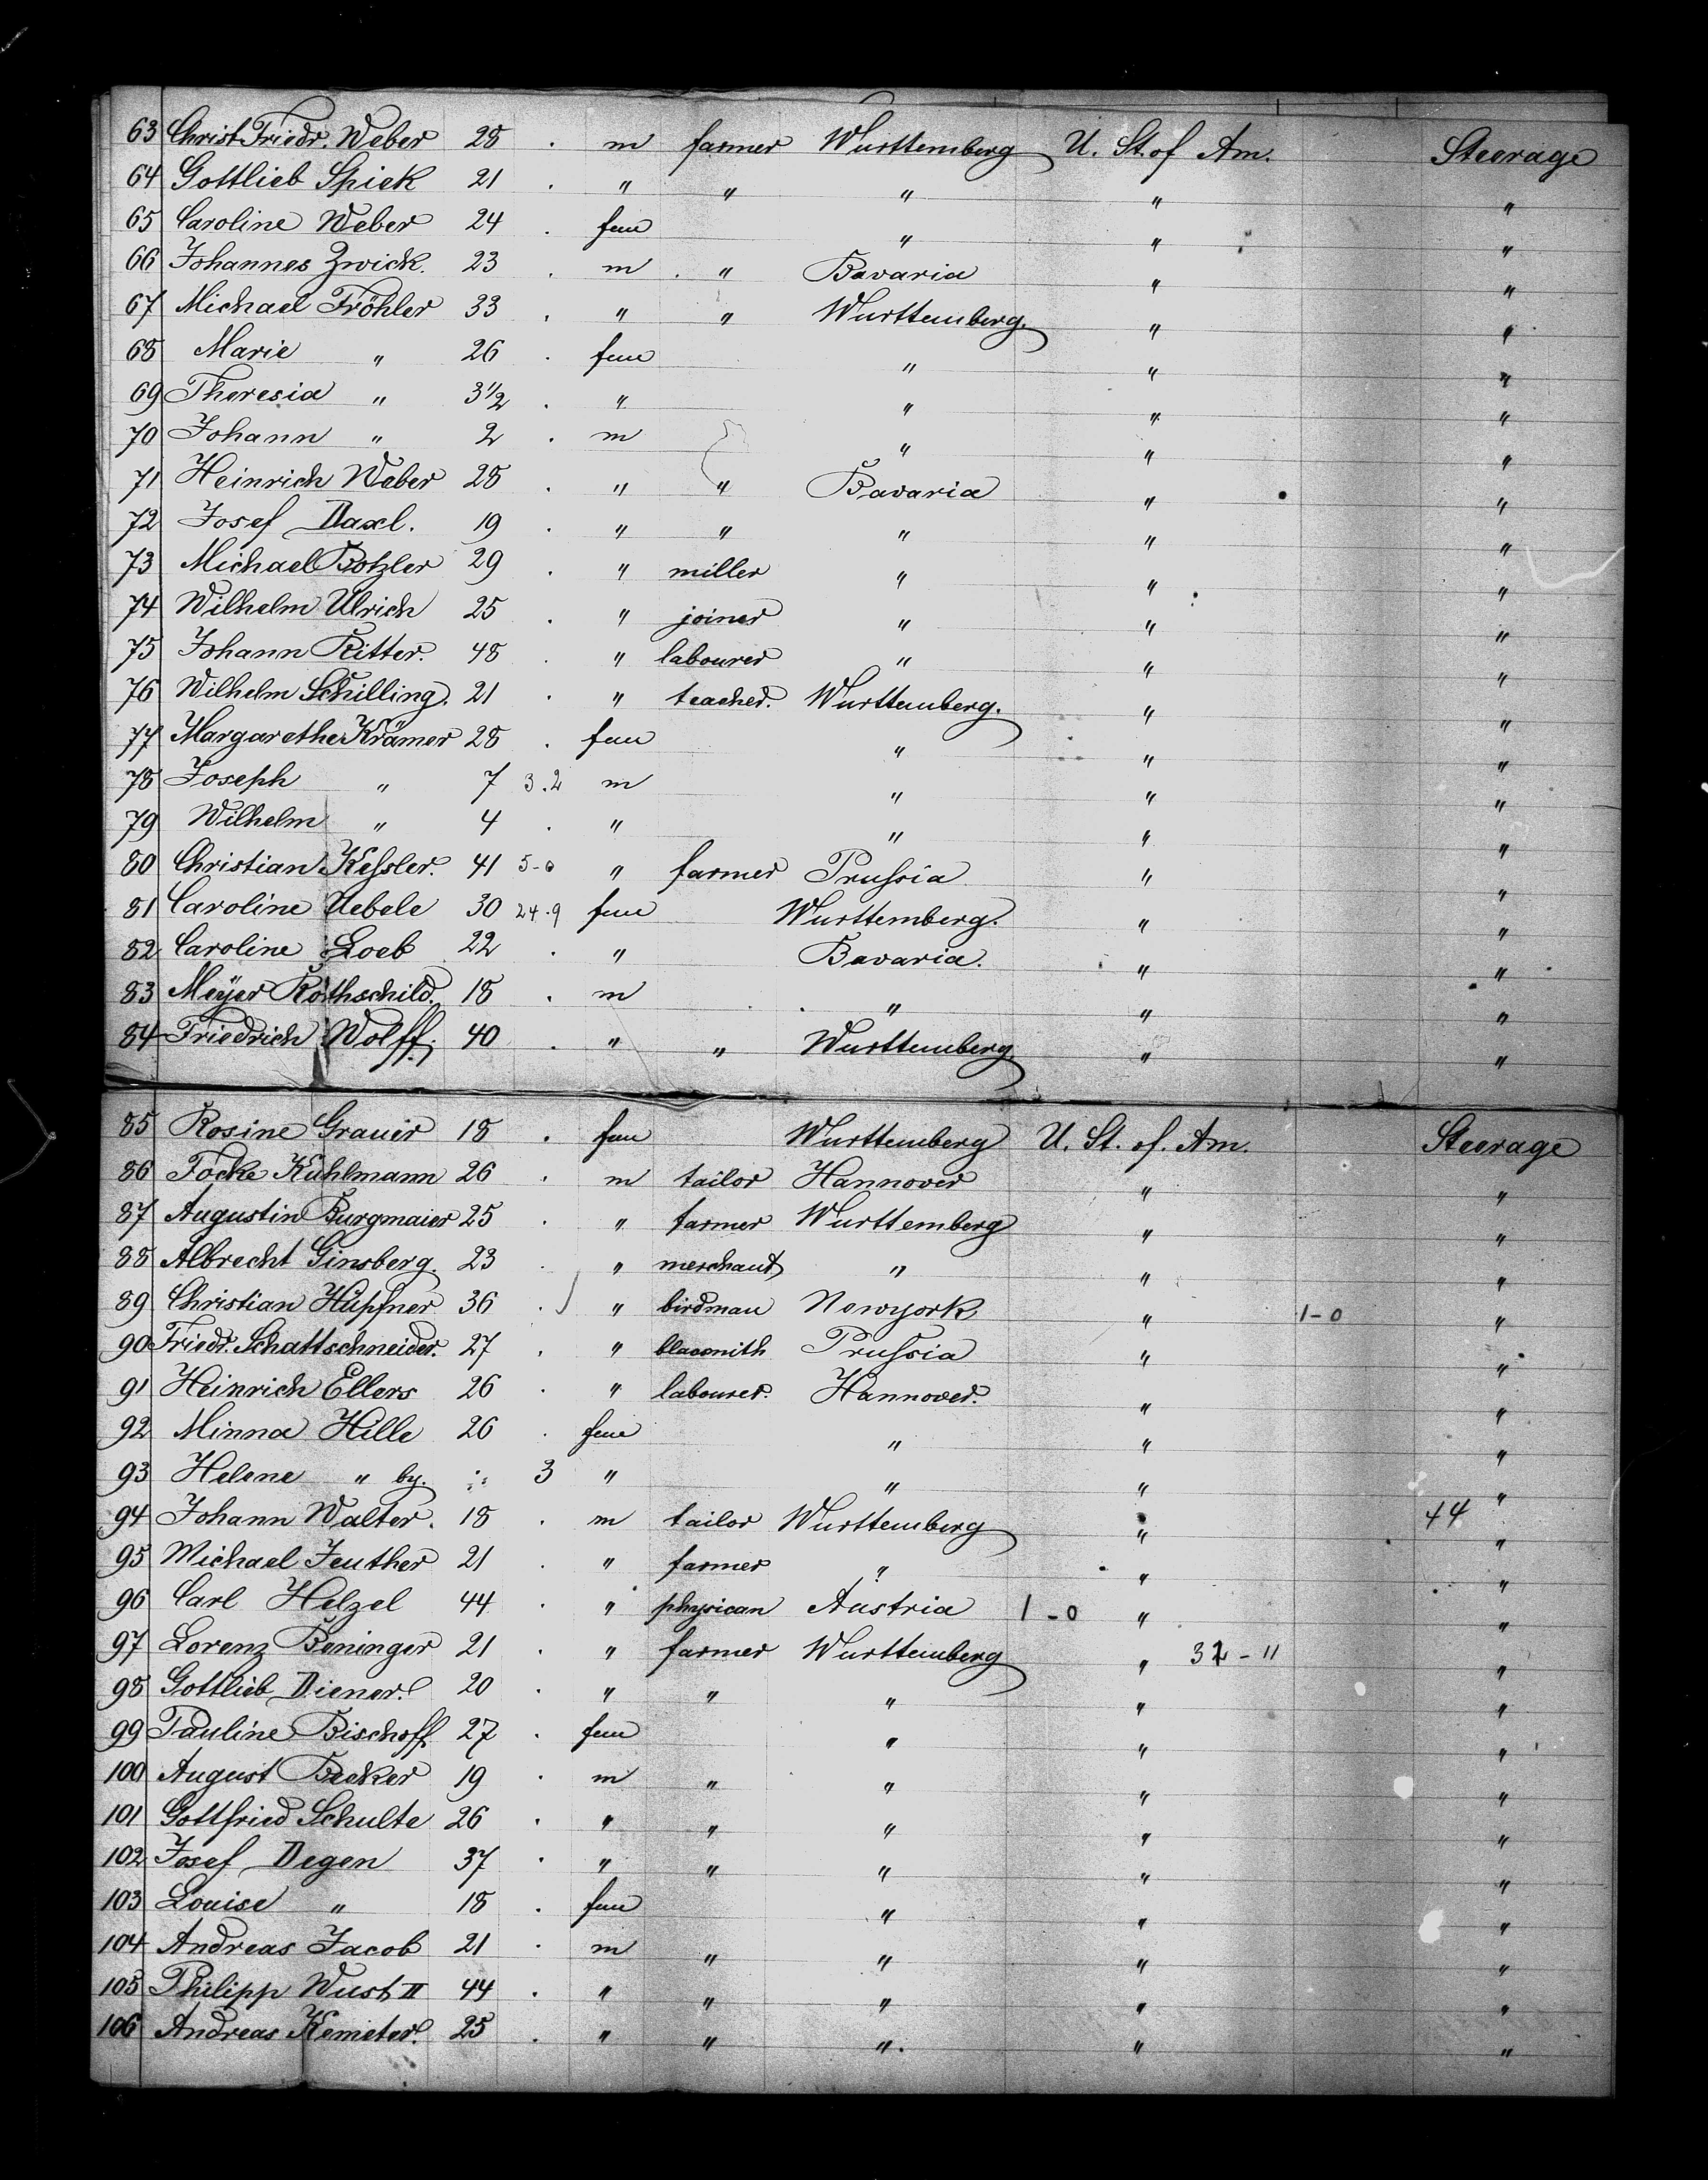 63 Christ. Friedr. Weber 28 . m farmer Wurttemberg U. St. of Am. Steerage
64 Gottlieb Spiek 21 . " " " " "
65 Caroline Weber 24 . fem " " "
66 Johannes Zwick. 23 . m . " Bavaria " "
67 Michael Fröhler 33 . " " Wurttemberg. " "
68 Marie " 26 . fem " " "
69 Theresia " 3½ . " " " "
70 Johann " 2 . m " " "
71 Heinrich Weber 28 . " " Bavaria " "
72 Josef Daxl. 19 . " " " " "
73 Michael Botzler 29 . " miller " " "
74 Wilhelm Ulrich 25 . " joiner " " "
75 Johann Ritter. 48 . " labourer " " "
76 Wilhelm Schilling. 21 . " teacher. Wurttemberg. " "
77 Margarethe Krämer 28 . fem " " "
78 Joseph " 7 3.2 m " " "
79 Wilhelm " 4 . " " " "
80 Christian Keſsler. 41 5-0 " farmer Pruſsia " "
81 Caroline Uebele 30 24.9 fem Wurttemberg. " "
82 Caroline Loeb 22 . " Bavaria. " "
83 Meyer Rothschild. 18 . m " " "
84 Friedrich Wolff. 40 . " " Wurttemberg. " "
85 Rosine Grauir 18 . fem Wurttemberg U. St. of. Am. Steerage
86 Focke Kuhlmann 26 . m tailor Hannover " "
87 Augustin Burgmaier 25 . " farmer Wurttemberg " "
88 Albrecht Ginsberg. 23 . " merchant " " "
89 Christian Hüpfner 36 . " birdman Newyork " 1-0 "
90 Friedr. Schattschneider. 27 . " blacsmith Pruſsia " "
91 Heinrich Ellers 26 . " labourer. Hannover. " "
92 Minna Hille 26 . fem " " "
93 Helene " by. 3 " " " "
94 Johann Walter. 18 . m tailor Wurttemberg " 44 "
95 Michael Jeuther 21 . " farmer " " "
96 Carl Helzel 44 . " physican Austria 1-0 " "
97 Lorenz Beninger 21 . " farmer Wurttemberg " 32-11 "
98 Gottlieb Diener. 20 . " " " " "
99 Pauline Bischoff. 27 . fem " " "
100 August Becker 19 . m " " " "
101 Gottfried Schulte 26 . " " " " "
102 Josef Degen 37 . " " " " "
103 Louise " 18 . fem " " "
104 Andreas Jacob 21 . m " " " "
105 Philipp Wust II 44 . " " " " "
106 Andreas Kemeter. 25 . " " ". " "